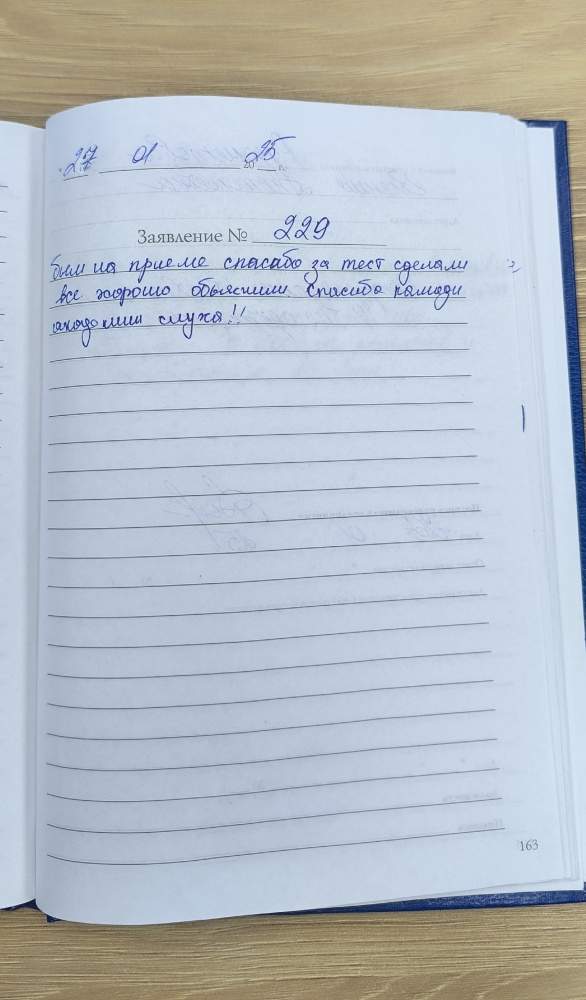 27 01 2025 г.
Заявление № 229
были на приеме спасибо за тест сделали
все хорошо объяснили. Спасибо
слуха!!
163